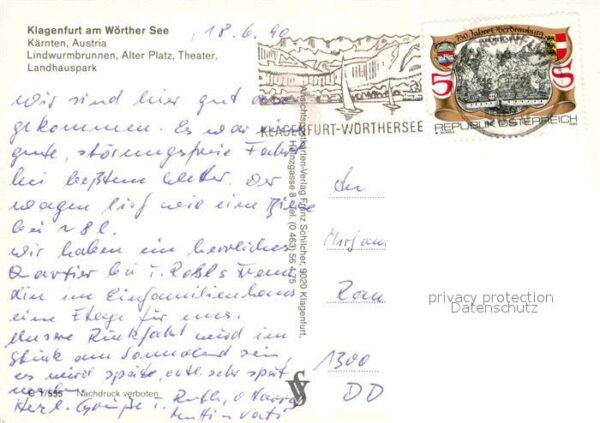 Klagenfurt am Wörther See
Kärnten, Austria
Lindwurmbrunnen, Alter Platz, Theater,
Landhauspark
18.6.90
KLAGENFURT-WÖRTHERSEE
750 Jahre Oberdrauburg
5 S
REPUBLIK ÖSTERREICH
Wir sind hier gut an
gekommen. Es war eine
gute, störungsfreie Fahrt
bei bestem Wetter. Der
Wagen lief wie eine Biene
bei 8 l.
Wir haben ein herrliches
Quartier bei
im Einfamilienhaus
eine Etage für uns.
Unsere Rückfahrt wird im
Stück am Sonnabend sein
es wird spät, evtl. sehr spät
werden.
Herzl. Grüße i. Ruth, o
Mutti u. Vati
C 1/555 Nachdruck verboten
Ansichtskarten-Verlag Franz Schilcher, 9020 Klagenfurt,
8 • Tel. (0 463) 56 1 75
An
Mirjam
1300
DD
privacy protection
Datenschutz